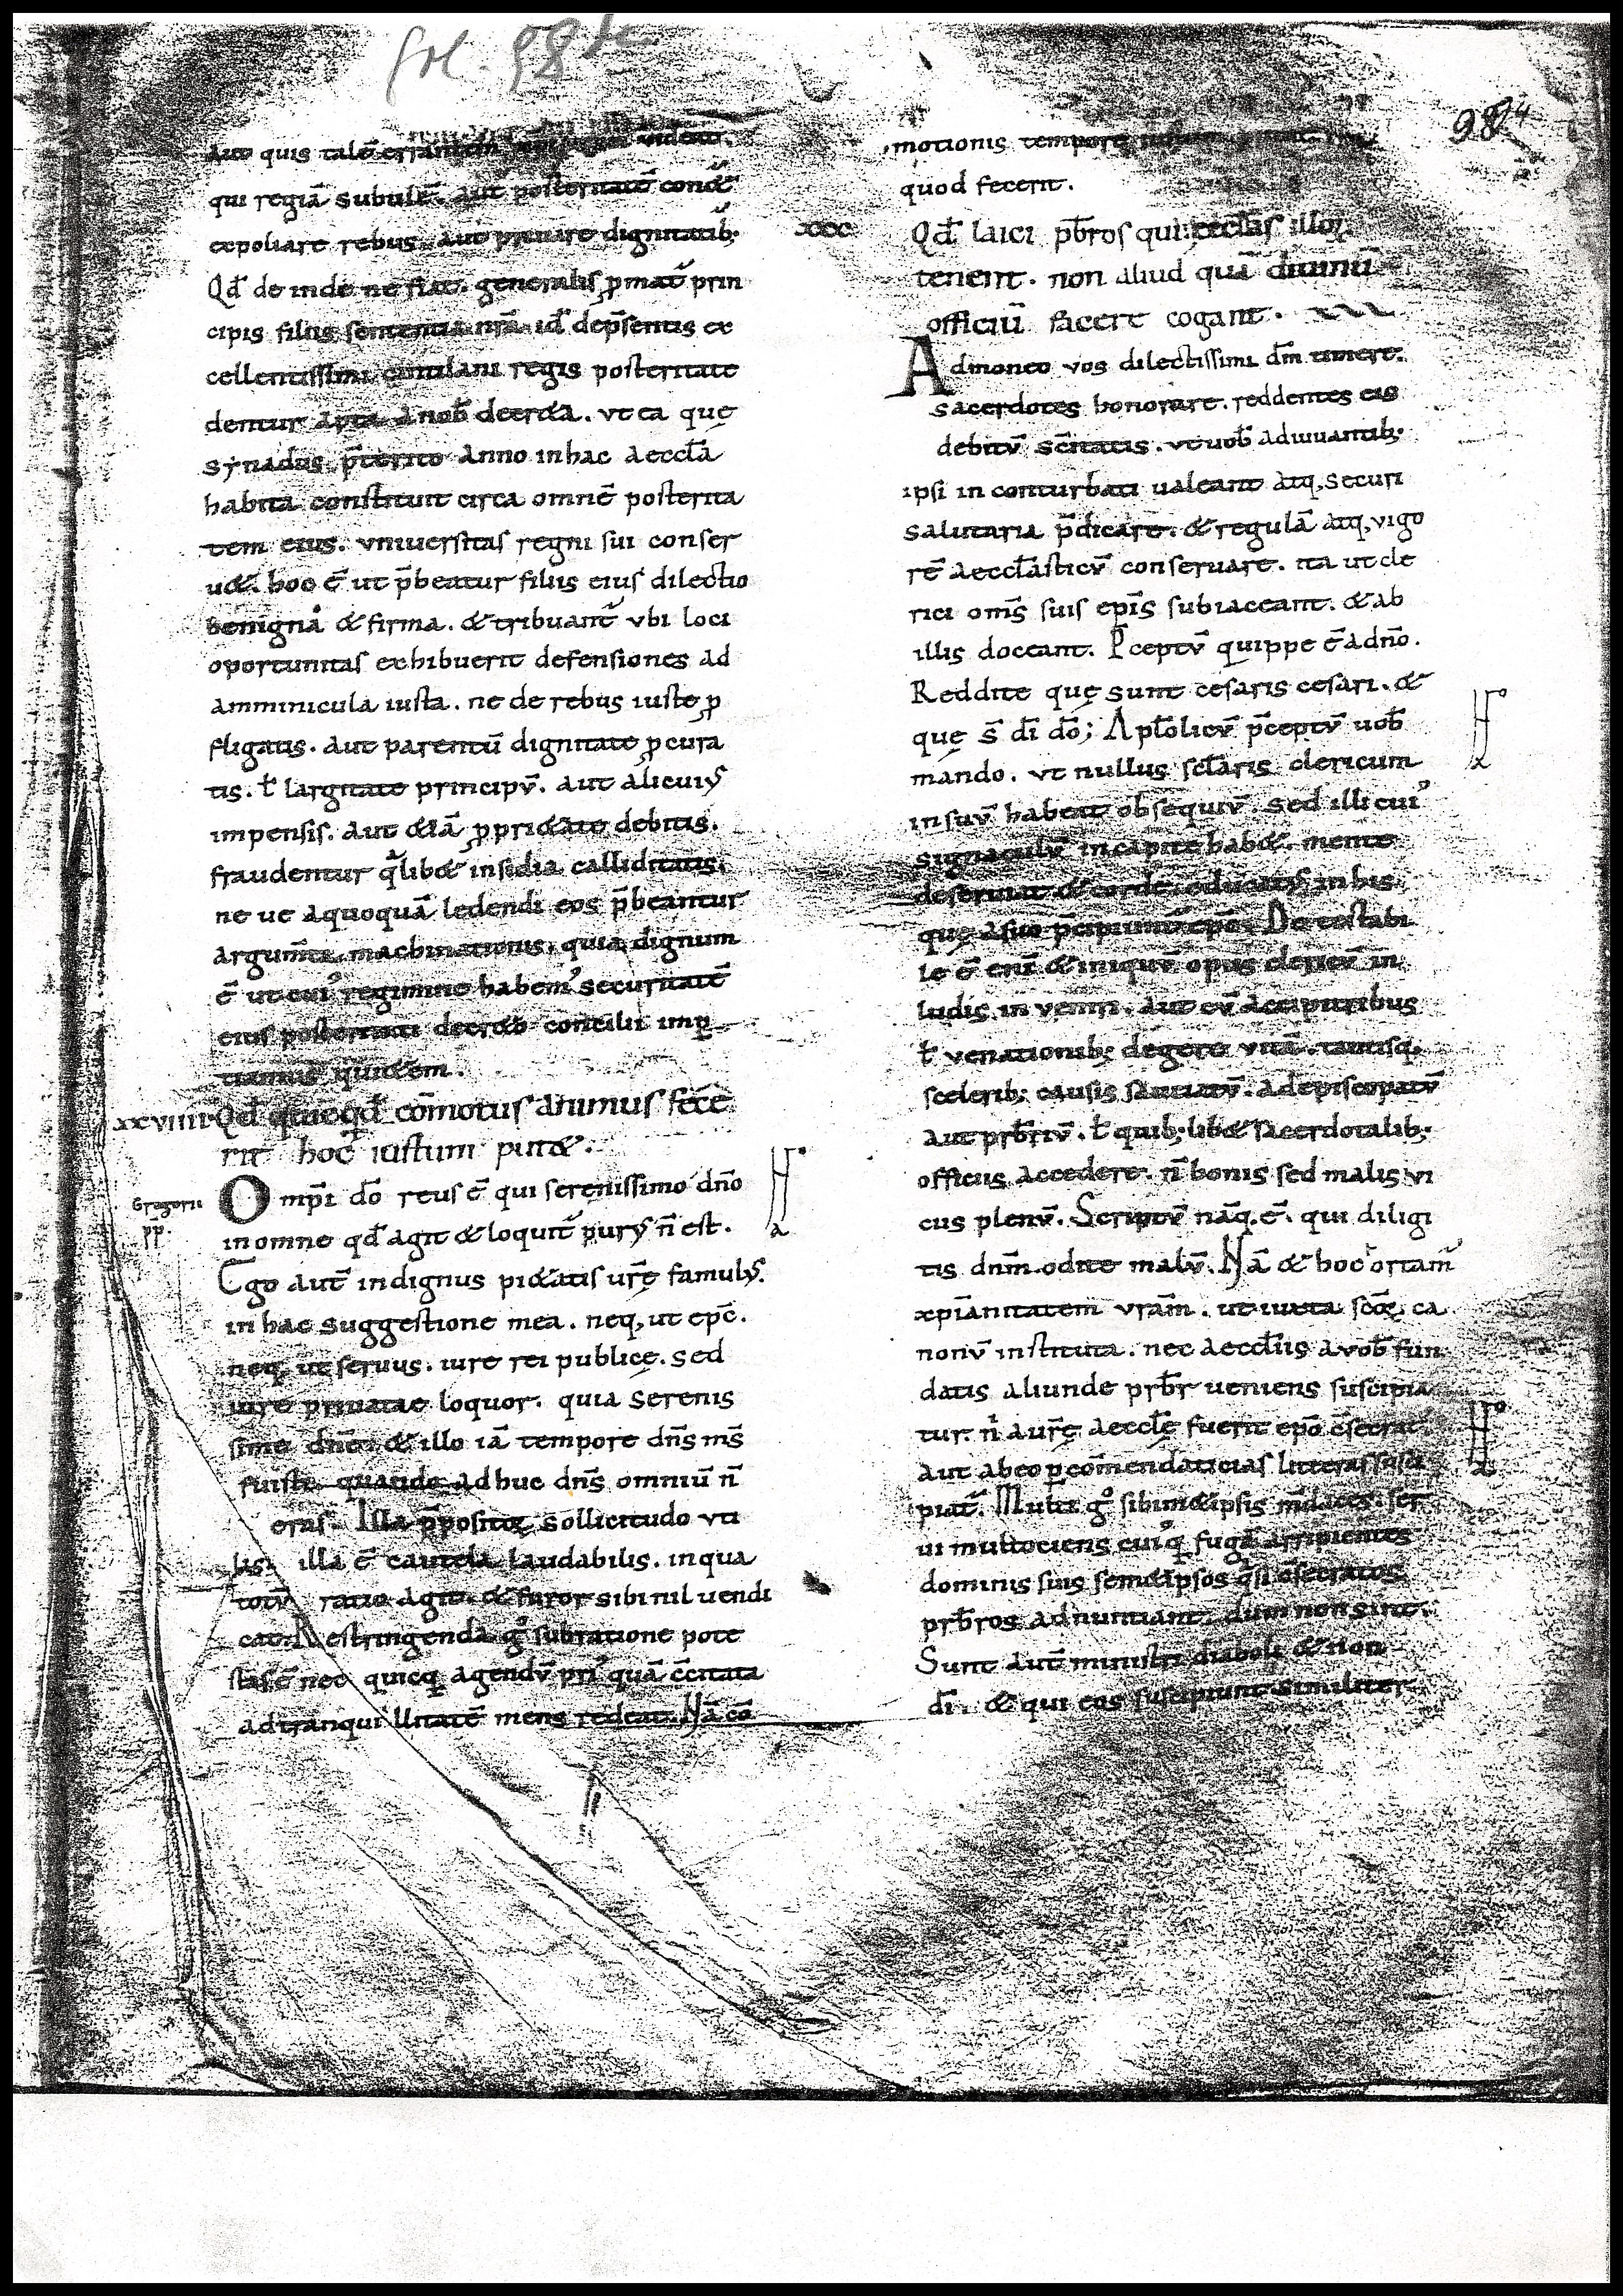 fol. 98
984
aut quis talē errantem videat.
qui regiā subulē. aut posteritatē cond&
expoliare rebus. aut priuare dignitatib;
Qd̄ de inde ne fiat. generalis ꝓmat̄ prin
cipis filiis sententia nr̄a id dep̄sentis ex
cellentissimi regis posteritate
dentur apta a nob̄ decr&a. vt ea quę
synadus p̄terito anno in hac aeccl̄a
habita constituit circa omnē posterita
tem eius. vniuersitas regni sui conser
u&. hoc ē ut p̄beatur filiis eius dilectio
benigna & firma. & tribuant̄ vbi loci
oportunitas exhibuerit defensiones ad
amminicula iusta. ne de rebus iuste ꝓ
fligatis. aut parentū dignitate ꝓcura
tis. ł largitate principv̄. aut alicuiꝰ
impensis. aut &iā ꝓpri&ate debitis.
fraudentur qͥlib& insidia calliditatis.
ne ue aquoquā ledendi eos p̄beantur
argum̄ta machinationis. quia dignum
ē ut cuiꝰ regimine habemꝰ securitatē
eius posteritati decr&o concilii imp
tiamus qui&em.
xxviiii Qd̄ quicqd̄ cōmotus animus fece
rit hoc iustum put&.
Gregorii
pp̄.
Omp̄i do reus ē qui serenissimo dn̄o
in omne qd̄ agit & loquit̄ purꝰ n̄ est.
Ego aut̄ indignus pi&atis ur̄ę famulꝰ.
in hac suggestione mea. neq, ut ep̄c.
neq, ut seruus. iure rei publicę. sed
iure priuatae loquor. quia serenis
sime dn̄e. & illo iā tempore dn̄s m̄s
fuisti quando adhuc dn̄s omniū n̄
eras. Illa p̄positoꝝ sollicitudo vti
lis. illa ē cautela laudabilis. in qua
totv̄ ratio agit. & furor sibi nil uendi
cat. Restringenda gͦ sub ratione pote
stas ē nec quicq agendv̄ priꝰ quā c̄citata
ad tranquillitatē mens redeat. Nā cō
motionis tempore
quod fecerit.
xxx Qd̄ laici pb̄ros qui ecclas illoꝝ
tenent. non aliud quā diuinū
officiū facere cogant.
Admoneo vos dilectissimi dm̄ timere.
sacerdotes honorare. reddentes eis
debitv̄ sc̄itatis. vt uob̄ adiuuantib;
ipsi in conturbati ualeant atq, securi
salutaria p̄dicare. & regulā atq, vigo
rē aeccl̄asticv̄ conseruare. ita ut cle
rici oms̄ suis epīs subiaceant. & ab
illis doceant. P̄ceptv̄ quippe ē a dn̄o.
Reddite quę sunt cesaris cesari. &
quę s̄ di dō; Aptolicv̄ p̄ceptv̄ uob̄
mando. vt nullus scl̄aris clericum
in suv̄ habeat obsequiv̄. sed illi cuiꝰ
signaculv̄ in capite hab&. mente
deseruiat & corde. in his
quę a suo p̄cipiunt̄ epō. De testabi
le ē eni & iniquv̄ opus clericv̄ in
ludis in veniri. aut cv̄ accipitribus
ł venationib; degere vitā. tantisq,
scelerib; causis satiatv̄. ad episcopatv̄
aut prb̄riv̄. ł quib; lib& sacerdotalib;
officiis accedere. n̄ bonis sed malis vi
cus plenv̄. Scriptv̄ nāq. ē. qui diligi
tis dnm̄ odite malv̄. Nā & hoc ortam̄
xpīanitatem vram̄. ut iuxta scōꝝ ca
nonv̄ instituta. nec aeccl̄iis a vob̄ fun
datis aliunde prb̄r ueniens suscipia
tur. nͥ a ur̄ę aeccl̄ę fuerit epō c̄secrat̄
aut ab eo ꝑ cōmendaticias litteras susci
piat̄. Multi gͦ sibim&ipsis m̄daces. ser
ui multociens cuiꝰq fugā arripientes
dominis suis sem&ipsos qͣsi c̄secratos
prb̄ros adnuntiant. dum non sint.
Sunt aut̄ ministri diaboli & non
dī. & qui eos suscipiunt similiter.